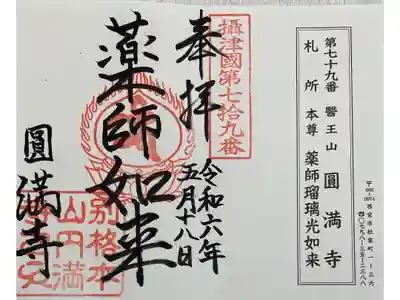 第七十九番 醫王山 圓満寺
札所 本尊 薬師瑠璃光如来
西宮市社家町一-三六
攝津國第七拾九番
奉拝
令和六年
五月十八日
薬師如来
圓満寺
別格本
山円満